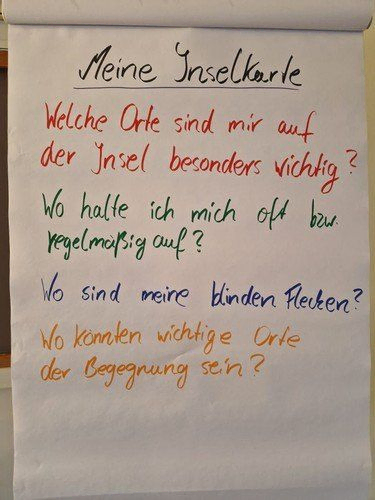 Meine Inselkarte
Welche Orte sind mir auf
der Insel besonders wichtig?
Wo halte ich mich oft bzw.
regelmäßig auf?
Wo sind meine blinden Flecken?
Wo könnten wichtige Orte
der Begegnung sein?